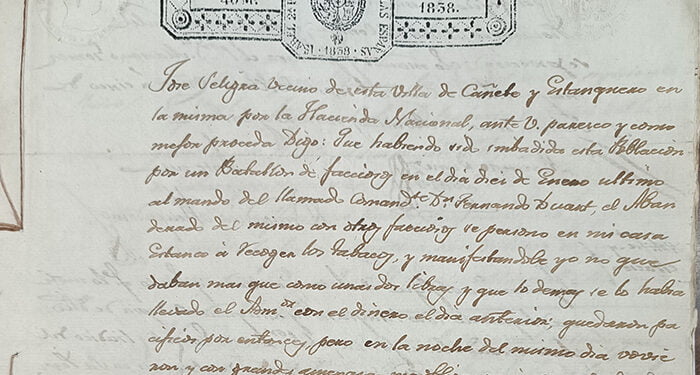 40 M.
ISABEL 2ª
LAS ESPAÑAS
1838.
1838
Jose Peligra Vecino de esta Villa de Cañete y Estanquero en
la misma por la Hacienda Nacional, ante V. paresco y como
mejor proceda Digo: Que habiendo sido imbadida esta Poblacion
por un Batallon de facciosos en el dia diez de Enero ultimo
al mando del llamado Comand.te D.n Fernando Duart, el Aban
derado del mismo con otros facciosos se persono en mi casa
Estanco á recoger los tabacos, y manifestandole yo no que
daban mas que como unas dos libras y que lo demas se lo habia
llevado el Adm.or con el dinero el dia anterior, quedaron pa
cificos por entonces, pero en la noche del mismo dia volvie
ron y con grandes amenazas